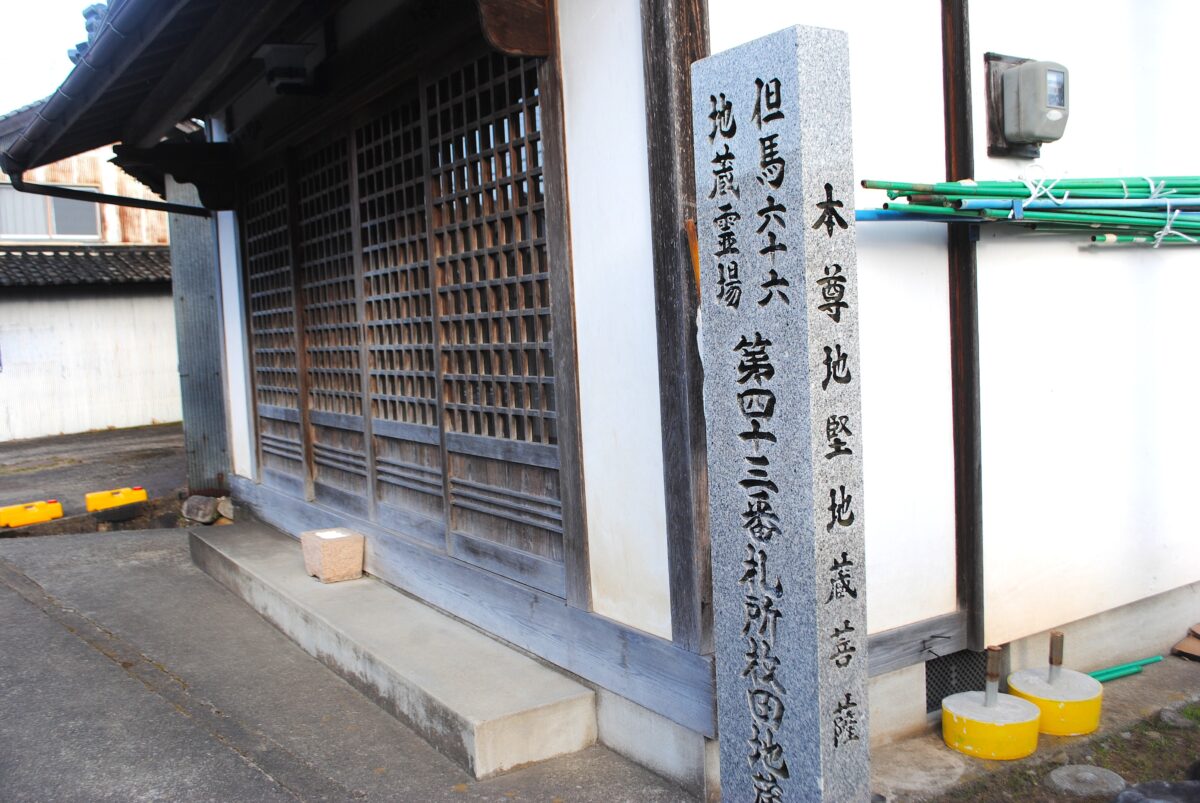 但馬六十六
地蔵霊場
第四十三番札所枚田地蔵
本尊地堅地蔵菩薩